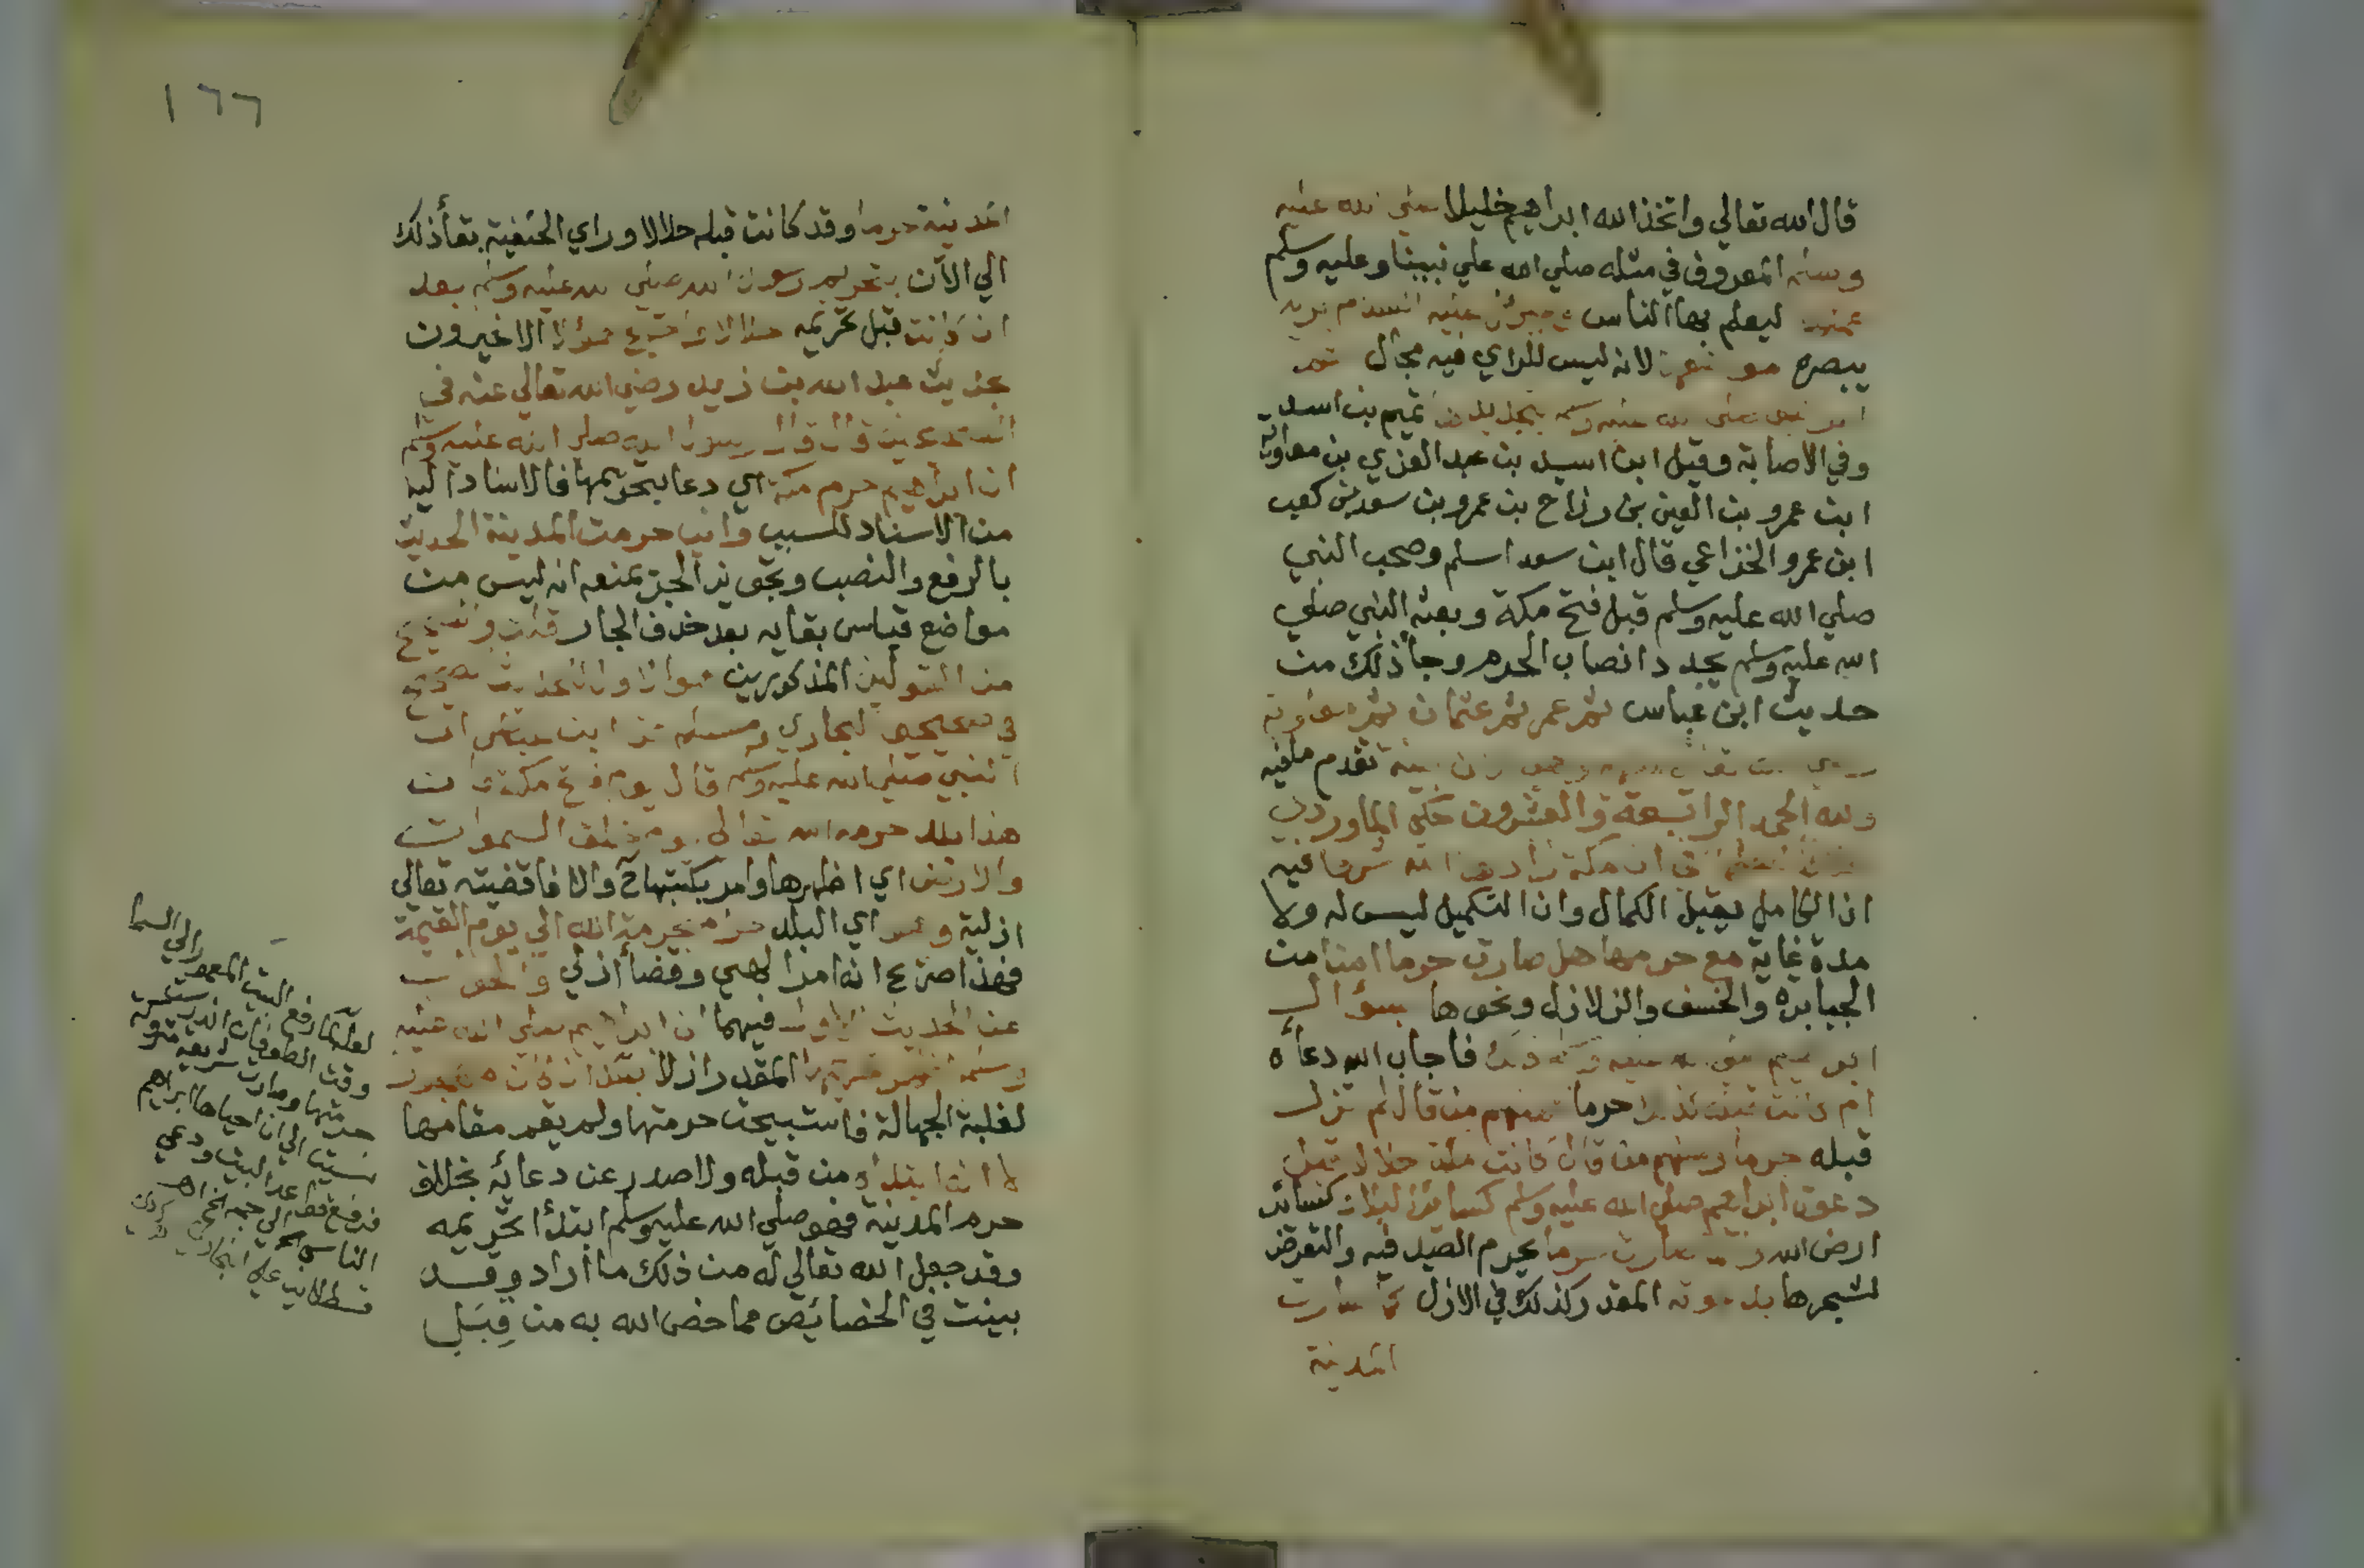 قال الله تعالي واتخذ الله ابراهيم خليلا صلي الله عليه
وسلم المعروف في مثله صلي الله علي نبينا وعليه وسلم
ليعلم بها الناس وجبرئل عليه السلام يريه
يبصره مواضعها لانه ليس للراي فيه مجال ثم
امر النبي صلي الله عليه وسلم بتجديدها تميم بن اسد
وفي الاصابة وقيل ابن اسيد بن عبد العزي بن معاوية
ابن عمرو بن القين بن رزاح بن عمرو بن سعد بن كعب
ابن عمرو الخزاعي قال ابن سعد اسلم وصحب النبي
صلي الله عليه وسلم قبل فتح مكة وبعثه النبي صلي
الله عليه وسلم يجدد انصاب الحرم وجأ ذلك من
حديث ابن عباس ثم عمر ثم عثمان ثم معاوية
تقدم مافيه
ولله الحمد الرابعة والعشرون حكي الماوردي
في ان مكة زادها الله شرفا فيه
ان الكامل يقبل الكمال وان التكميل ليس له ولا
مدة غاية مع حرمها هل صارت حرما امنا من
الجبابرة والخسف والزلازل ونحوها بسؤال
ابراهيم صلي الله عليه وسلم ذلك فاجاب الله دعأه
ام كانت قبله كذلك حرما فمنهم من قال لم تزل
قبله حرما ومنهم من قال كانت مكة حلالا قبل
دعوة ابراهيم صلي الله عليه وسلم كساير البلاد كسائر
ارض الله و صارت حرما يحرم الصيد فيه والتعرض
لشجرها بدعوته المقدر كذلك في الازل كما صارت
المدينة
١٦٦
المدينة حرما وقد كانت قبله حلالا وراي الحنفية بقأ ذلك
الي الآن بتحريم رسول الله صلي الله عليه وسلم بعد
ان كانت قبل تحريمه حلالا احتج هؤلا الاخيرون
بحديث عبد الله بن زيد رضي الله تعالي عنه في
الصحيحين قال قال رسول الله صلي الله عليه وسلم
ان ابراهيم حرم مكة اي دعا بتحريمها فالاسناد اليه
من الاسناد للسبب واني حرمت المدينة الحديث
بالرفع والنصب وتجويز الجر يمنعه انه ليس من
مواضع قياس بقايه بعد حذف الجار قلت والصحيح
من القولين المذكورين هو الاول لحديث صحيح
في صحيحي البخاري ومسلم عن ابن عباس ان
النبي صلي الله عليه وسلم قال يوم فتح مكة ان
هذا بلد حرمه الله تعالي يوم خلق السموات
والارض اي اظهرها وامر بكتبها والا فاقضيته تعالي
ازلية وهو اي البلد حرام بحرمة الله الي يوم القيمة
فهذا صريح انه امر الهي وقضأ ازلي والجواب
عن الحديث الاول فيهما ان ابراهيم صلي الله عليه
وسلم اظهر تحريمها المقدر ازلا بعد ان كان مهجور
لغلبة الجهالة فاستبيحت حرمتها ولم يقم مقامها
لا انه ابتدأه من قبله ولا صدر عن دعائه بخلاف
حرم المدينة فهو صلي الله عليه وسلم ابتدأ تحريمه
وقد جعل الله تعالي له من ذلك ما اراد وقد
بينت في الخصائص مما خص الله به من قِبَل
لعله لما رفع البيت المعمور الي السما
وقت الطوفان اندرست حرمته
حرمتها وصارت شريعة متروكة
نسيت الي ان احياها ابراهيم
فرفع قواعد البيت ودعي
الناس الي حجه
قسطلاني علي البخاري